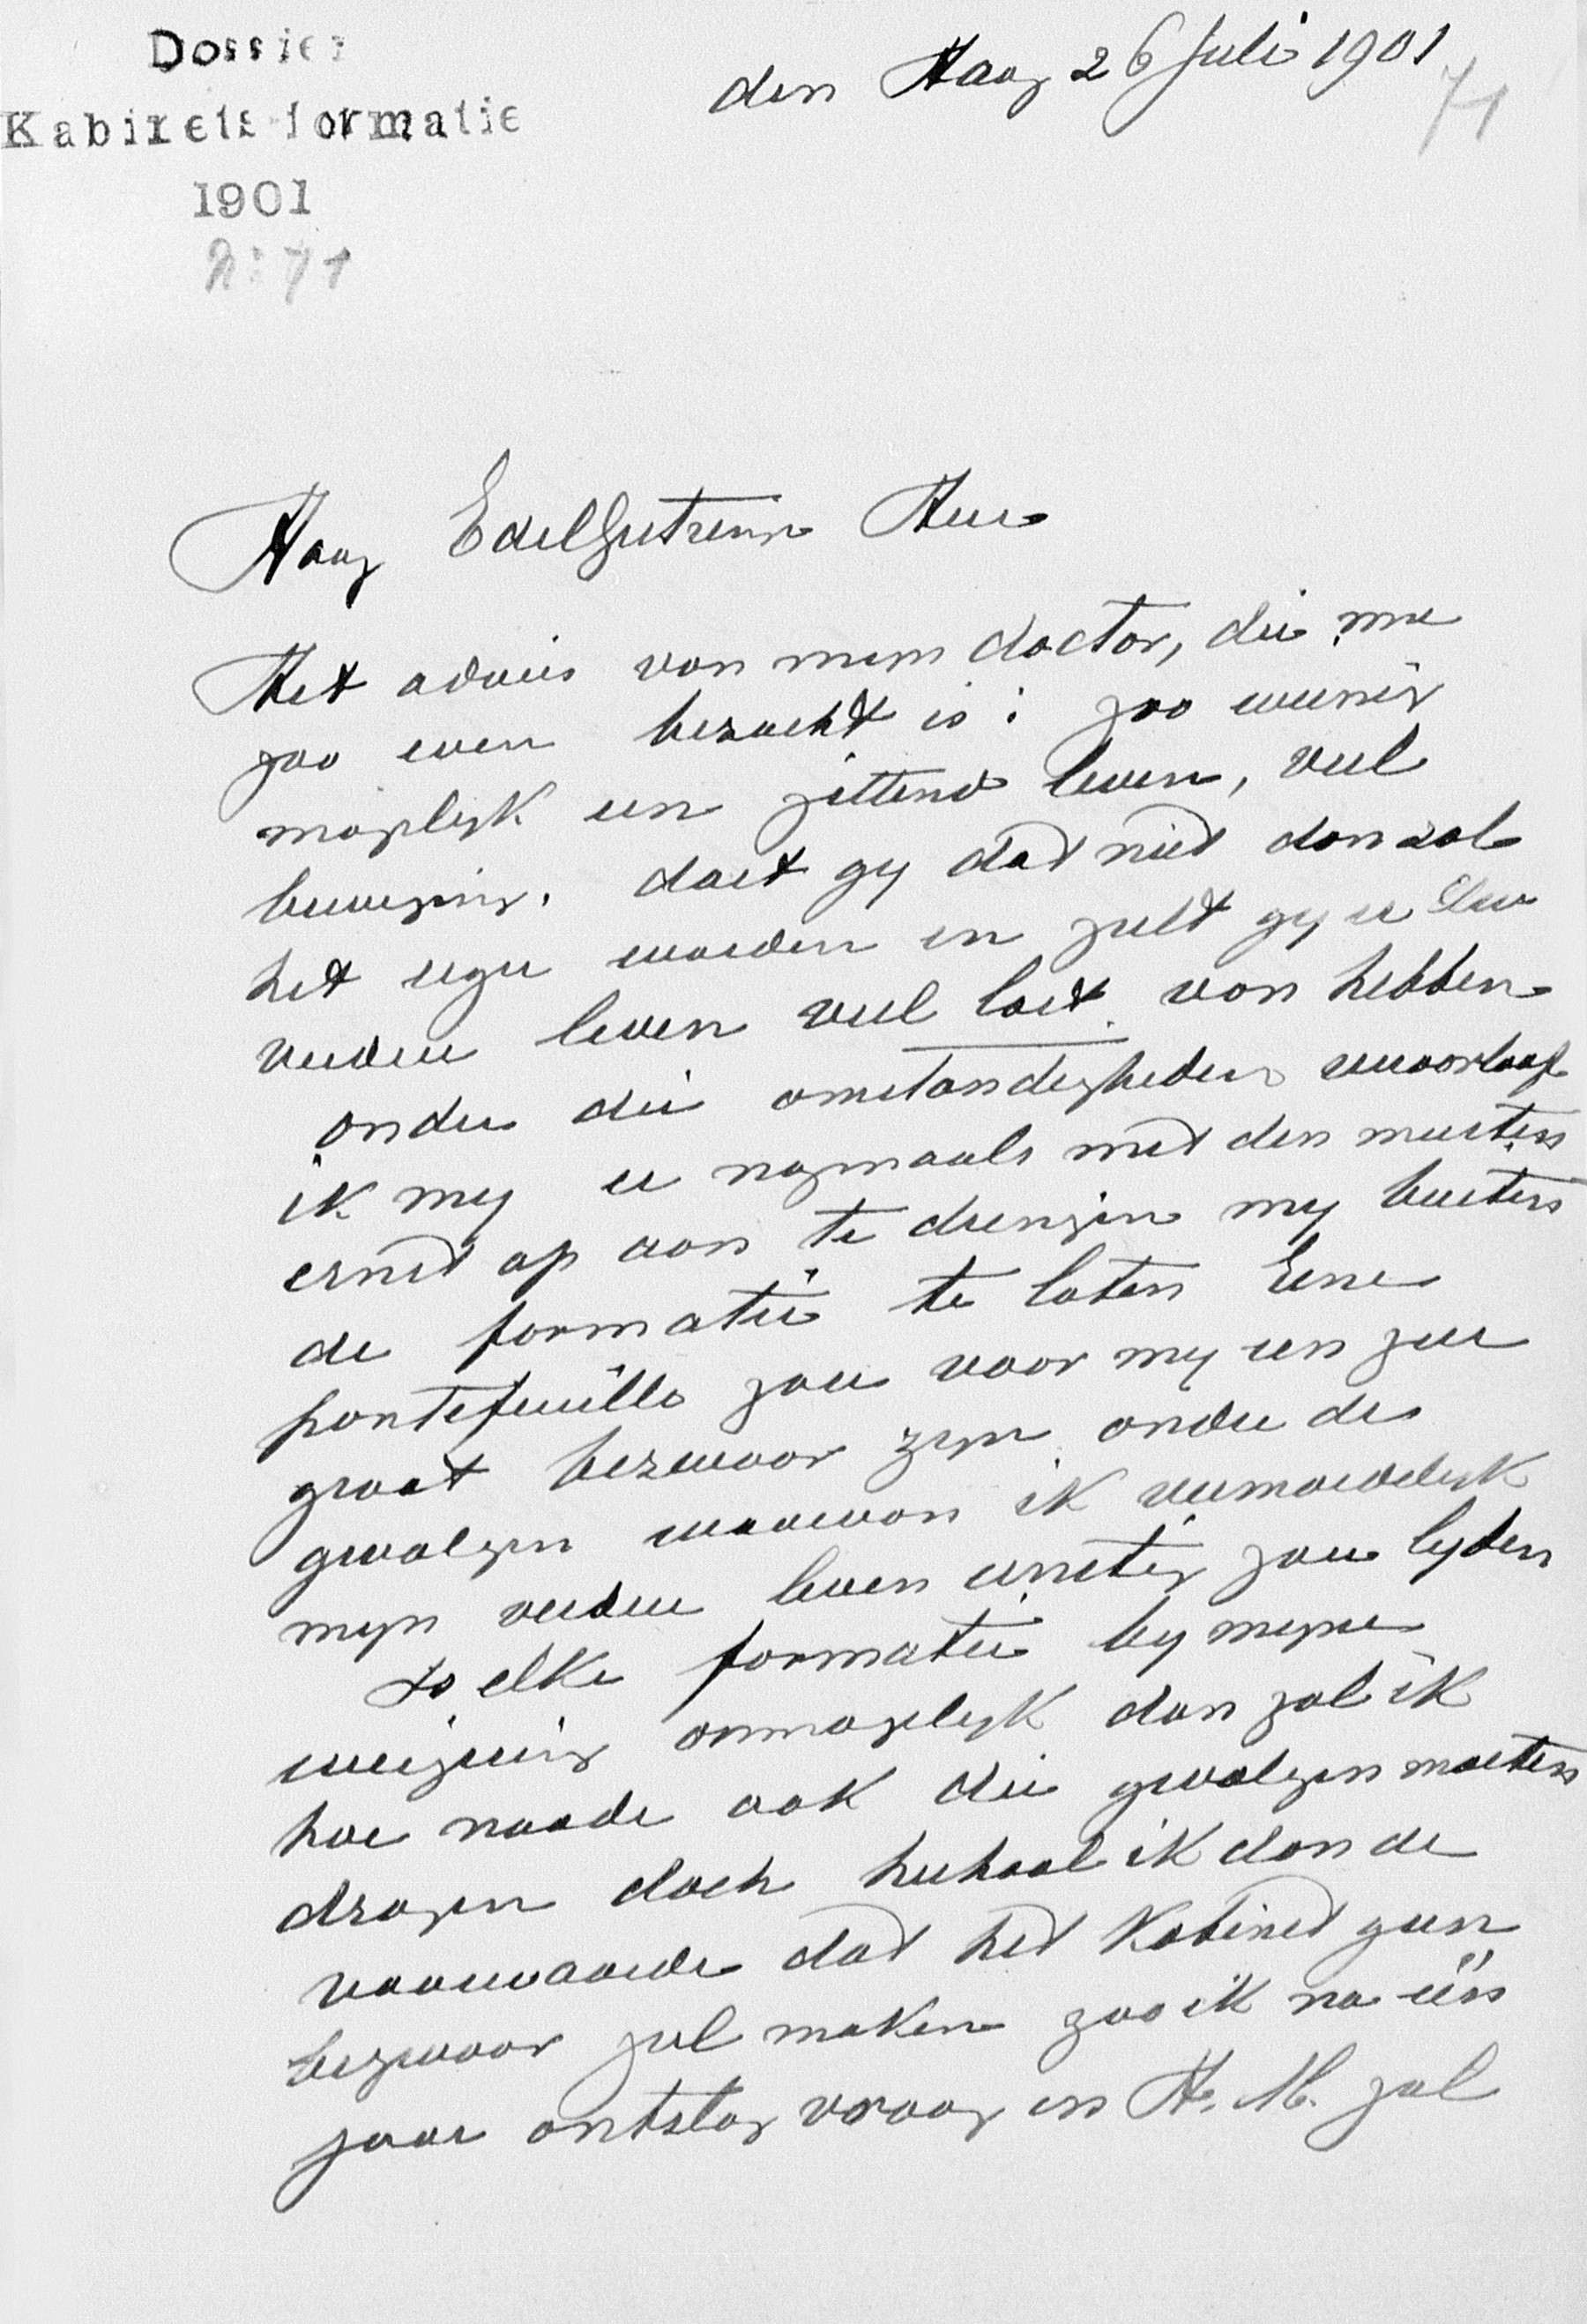 Dossier
Kabinets-formatie
1901
2:71
den Haag 26 Juli 1901
71
Hoog EdelGestreng Heer
Het advies van mijn doctor, die me
zoo even bezocht is: zoo weinig
mogelyk een zittend leven, veel
beweging. doet gy dat niet dan zal
het erger worden en zult gy er Uw
verdere leven veel last van hebben
onder die omstandigheden veroorloof
ik my u nogmaals met den meesten
ernst op aan te dringen my buiten
de formatie te laten Eene
portefeuille zou voor my een zeer
groot bezwaar zyn onder de
gevolgen waarvan ik vermoedelyk
myn verdere leven ernstig zou lyden
Is elke formatie by myne
weigering onmogelyk dan zal ik
hoe noode ook die gevolgen moeten
dragen doch herhaal ik dan de
voorwaarde dat het Kabinet geen
bezwaar zal maken zoo ik na één
jaar ontslag vraag en H. M. zal